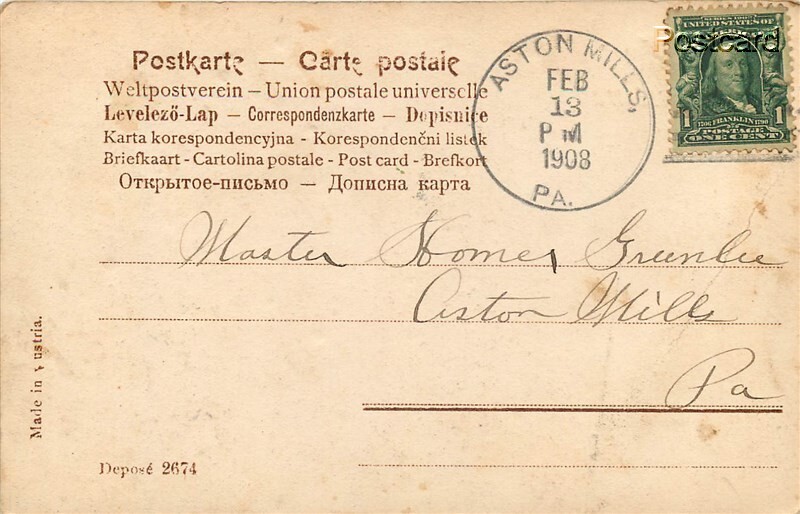 Postkarte — Carte postale
Weltpostverein – Union postale universelle
Levelező-Lap – Correspondenzkarte – Dopisnice
Karta korespondencyjna - Korespondenční lístek
Briefkaart - Cartolina postale - Post card - Brefkort
Открытое-письмо — Дописна карта
ASTON MILLS,
FEB
13
P M
1908
PA.
SERIES 1902
UNITED STATES OF AMERICA
Postcard
1 1706 FRANKLIN 1790 1
POSTAGE
ONE CENT
Master Homer Greenlee
Aston Mills
Pa
Made in Austria.
Deposé 2674